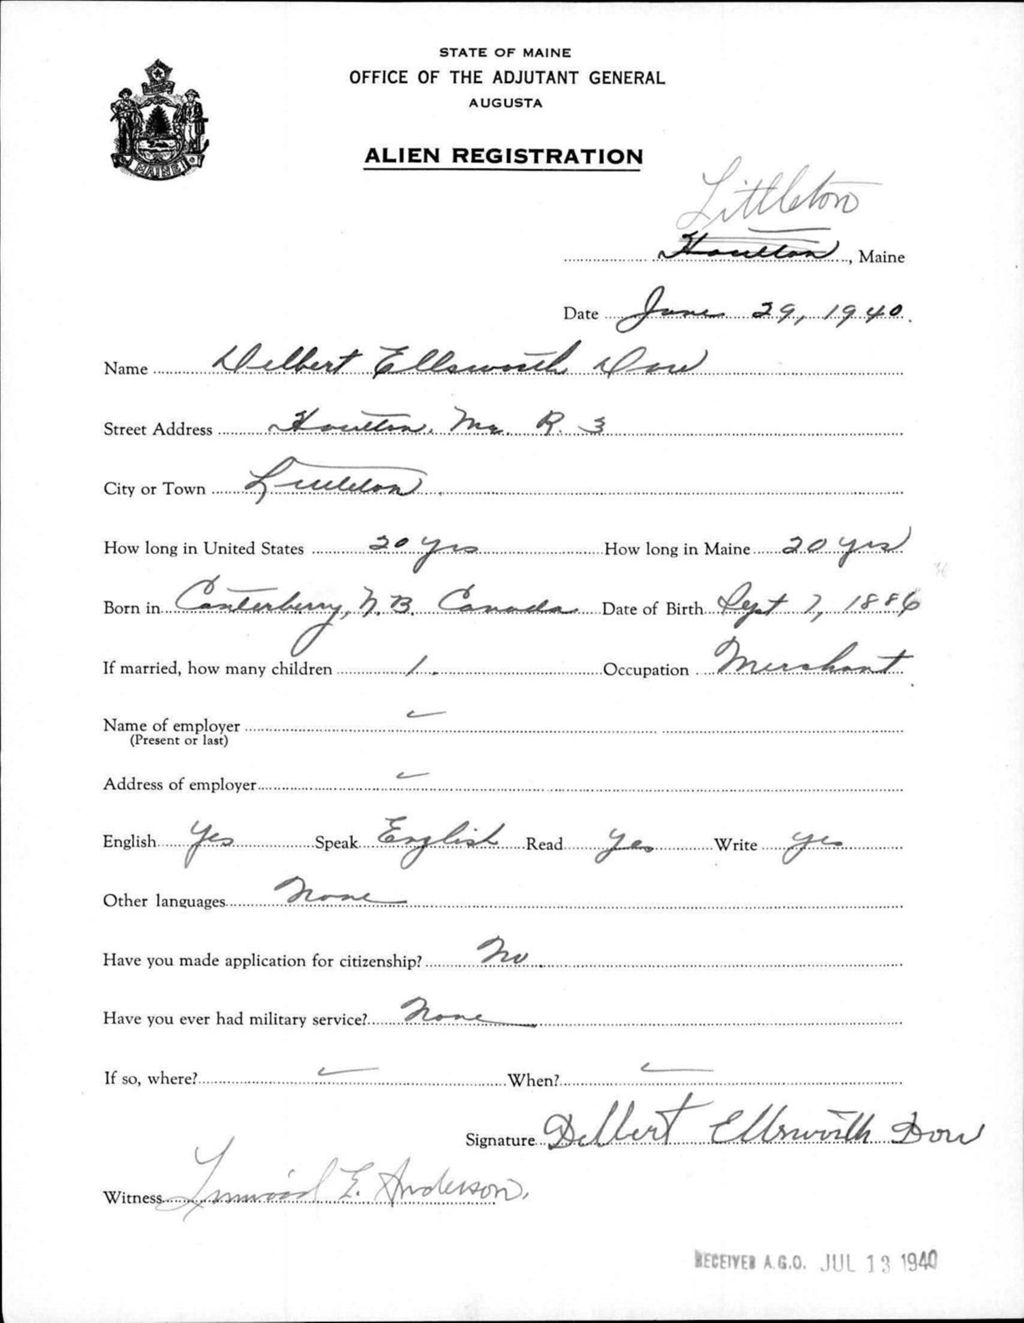 STATE OF MAINE
OFFICE OF THE ADJUTANT GENERAL
AUGUSTA
ALIEN REGISTRATION
MAINE
Littleton
Houlton, Maine
Date June 29, 1940.
Name Delbert Ellsworth Dow
Street Address Houlton, Me. R. 3
City or Town Littleton
How long in United States 20 yrs How long in Maine 20 yrs
Born in Canterberry, N.B. Canada Date of Birth Sept 7, 1886
If married, how many children 1. Occupation Merchant
Name of employer
(Present or last)
Address of employer
English Yes Speak English Read Yes Write Yes
Other languages None
Have you made application for citizenship? No.
Have you ever had military service? None
If so, where? When?
Signature Delbert Ellsworth Dow
Witness Linwood E. Anderson.
RECEIVED A.G.O. JUL 13 1940